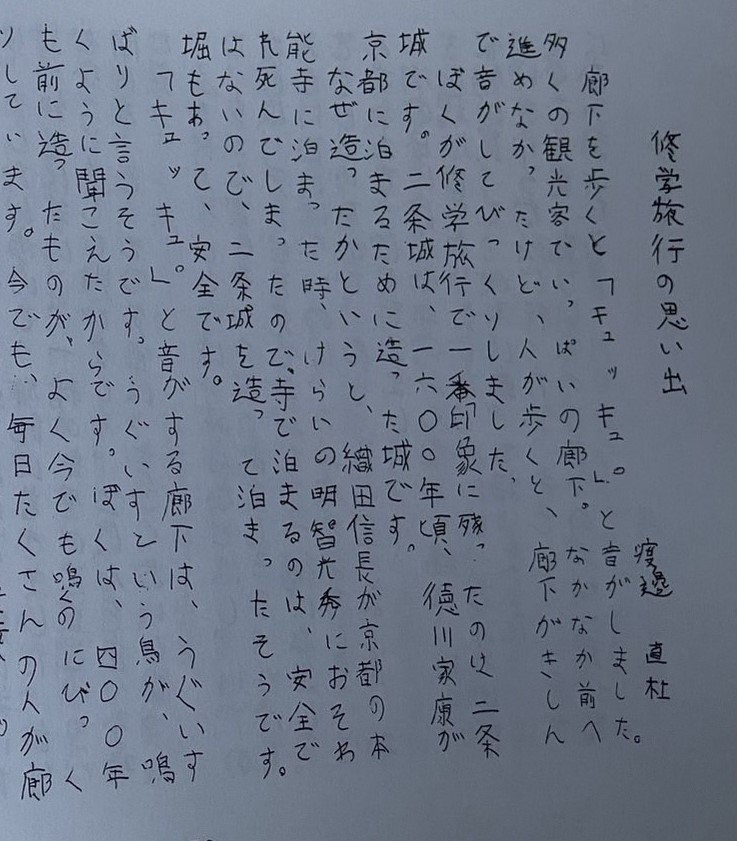 修学旅行の思い出
渡邊 直杜
廊下を歩くと「キュッキュ。」と音がしました。
多くの観光客でいっぱいの廊下。なかなか前へ
進めなかったけど、人が歩くと、廊下がきしん
で音がしてびっくりしました。
ぼくが修学旅行で一番印象に残ったのは二条
城です。二条城は、一六〇〇年頃、徳川家康が
京都に泊まるために造った城です。
なぜ造ったかというと、織田信長が京都の本
能寺に泊まった時、けらいの明智光秀におそわ
れ死んでしまったので、寺で泊まるのは、安全で
はないので、二条城を造って泊まったそうです。
堀もあって、安全です。
「キュッキュ。」と音がする廊下は、うぐいす
ばりと言うそうです。うぐいすという鳥が、鳴
くように聞こえたからです。ぼくは、四〇〇年
も前に造ったものが、よく今でも鳴くのにびっく
りしています。今でも、毎日たくさんの人が廊